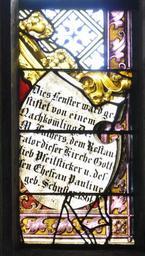 Dies Fenster ward ge
stiftet von einem
Nachkömling D.
M. Luthers, dem Restau
rator dieser Kirche Gott
lieb Pfeilsticker u. des
sen Ehefrau Pauline
geb. Schuster